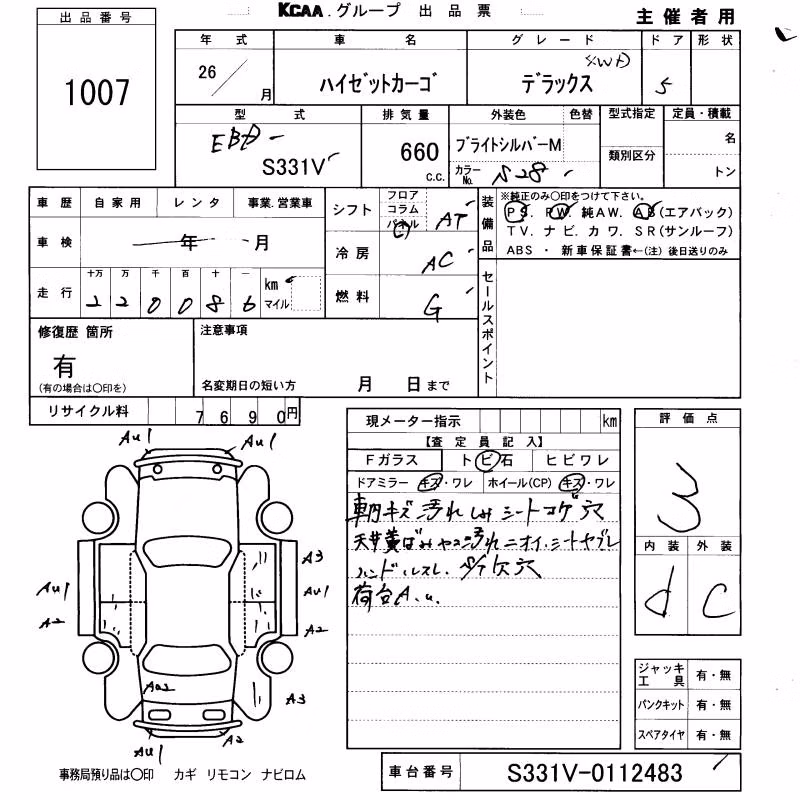 KCAA.グループ 出品票
主催者用
出品番号
1007
年式
26/
月
車名
ハイゼットカーゴ
グレード
4WD
デラックス
ドア
5
形状
型式
EBD-
S331V
排気量
660
c.c.
外装色
色替
ブライトシルバーM
カラーNo.
S28
型式指定
類別区分
定員・積載
名
トン
車歴
自家用
レンタ
事業.営業車
車検
年 月
走行
十万 万 千 百 十 一
2 2 0 0 8 6
km
マイル
シフト
フロア
コラム
パネル
AT
冷房
AC
燃料
G
装備品
※純正のみ〇印をつけて下さい。
PS. PW. 純AW. AB(エアバック)
TV. ナビ. カワ. SR(サンルーフ)
ABS ・ 新車保証書←(注) 後日送りのみ
セールスポイント
修復歴 箇所
有
(有の場合は〇印を)
注意事項
名変期日の短い方 月 日まで
リサイクル料
7690円
現メーター指示
km
【査定員記入】
Fガラス
トビ石
ヒビワレ
ドアミラー キズ・ワレ
ホイール(CP) キズ・ワレ
車内キズ汚れしみシートコゲ穴
天井黄ばみヤニ汚れニオイ.シートヤブレ
ハンドルスレ. 穴
荷台A.U.
評価点
3
内装
d
外装
C
ジャッキ工具
有・無
パンクキット
有・無
スペアタイヤ
有・無
AU1
AU1
A3
AU1
AU1
A2
A2
AU2
A3
AU1
A2
事務局預り品は〇印 カギ リモコン ナビロム
車台番号
S331V-0112483